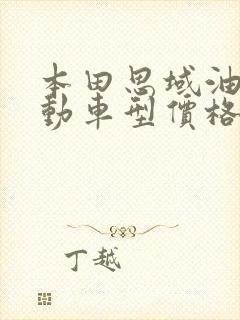 本田思域油
動車型價格
丁越